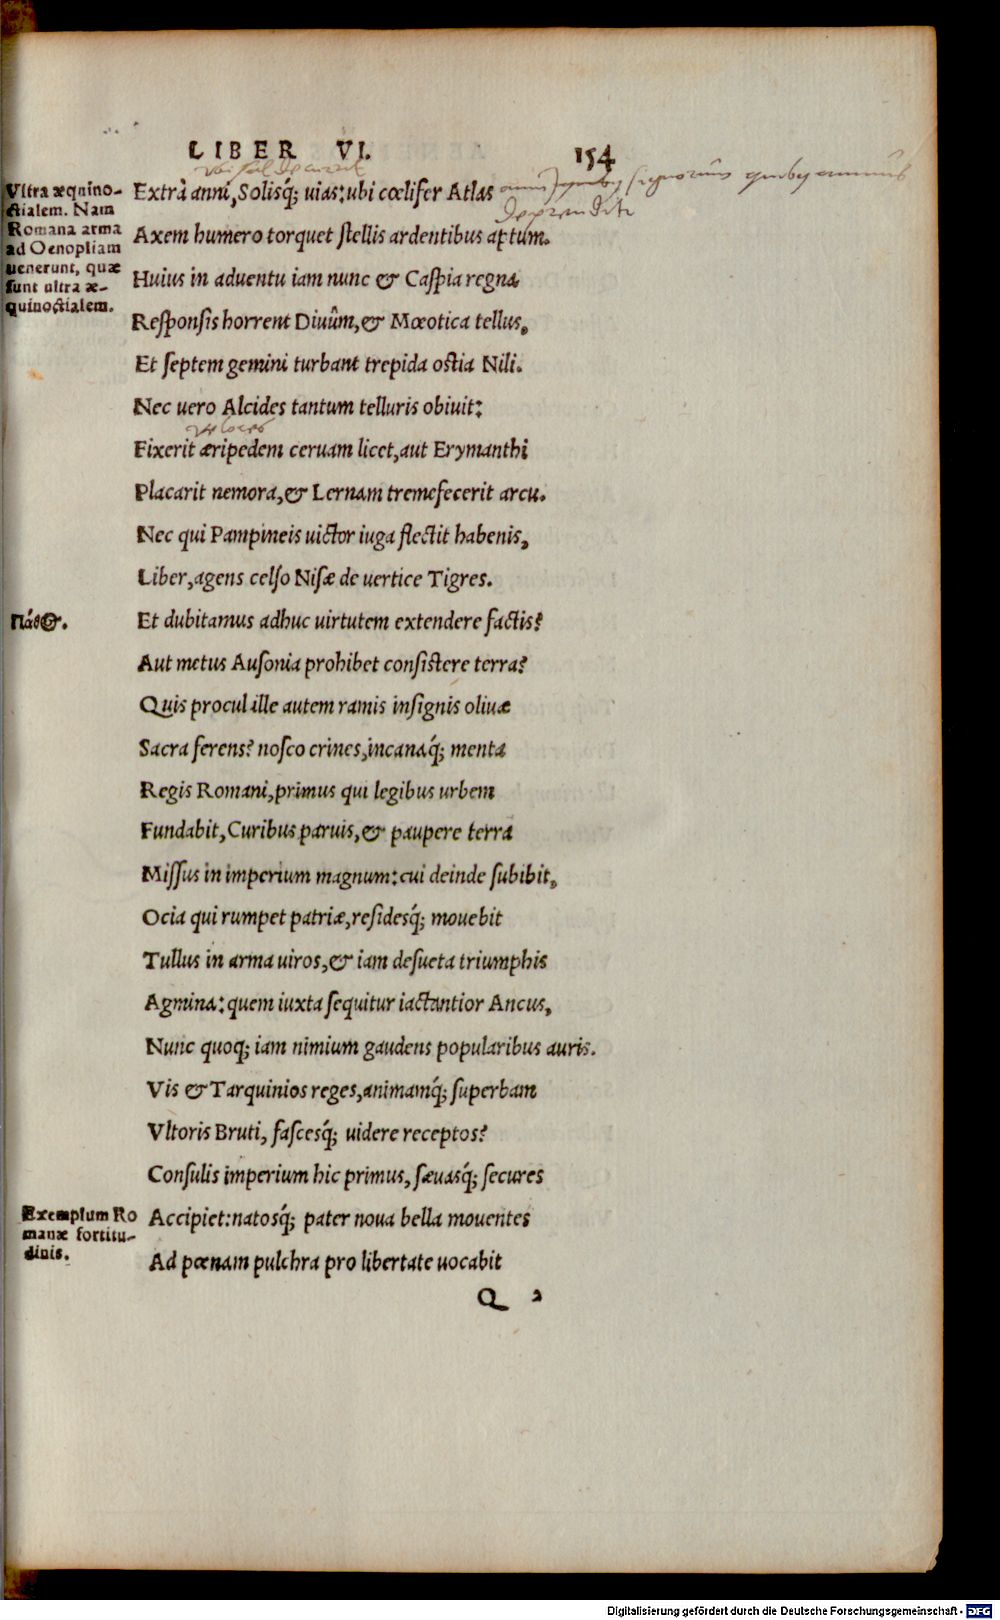 LIBER VI. 154
Vltra æquino-
ctialem. Nam
Romana arma
ad Oenopliam
uenerunt, quæ
sunt ultra æ-
quinoctialem.
ubi sol decurrit
Extrà anni, Solisq́; uias: ubi cœlifer Atlas
signorum quibus annus
Axem humero torquet stellis ardentibus aptum.
Huius in aduentu iam nunc & Caspia regna
Responsis horrent Diuûm, & Mœotica tellus,
Et septem gemini turbant trepida ostia Nili.
Nec uero Alcides tantum telluris obiuit:
veloces
Fixerit æripedem ceruam licet, aut Erymanthi
Placarit nemora, & Lernam tremefecerit arcu.
Nec qui Pampineis uictor iuga flectit habenis,
Liber, agens celso Nisæ de uertice Tigres.
Πάθος.
Et dubitamus adhuc uirtutem extendere factis?
Aut metus Ausonia prohibet consistere terra?
Quis procul ille autem ramis insignis oliuæ
Sacra ferens? nosco crines, incanaq́; menta
Regis Romani, primus qui legibus urbem
Fundabit, Curibus paruis, & paupere terra
Missus in imperium magnum: cui deinde subibit,
Ocia qui rumpet patriæ, residesq́; mouebit
Tullus in arma uiros, & iam desueta triumphis
Agmina: quem iuxta sequitur iactantior Ancus,
Nunc quoq; iam nimium gaudens popularibus auris.
Vis & Tarquinios reges, animamq́; superbam
Vltoris Bruti, fascesq́; uidere receptos?
Consulis imperium hic primus, sæuasq́; secures
Exemplum Ro
manæ fortitu-
dinis.
Accipiet: natosq́; pater noua bella mouentes
Ad pœnam pulchra pro libertate uocabit
Q 2
Digitalisierung gefördert durch die Deutsche Forschungsgemeinschaft - DFG